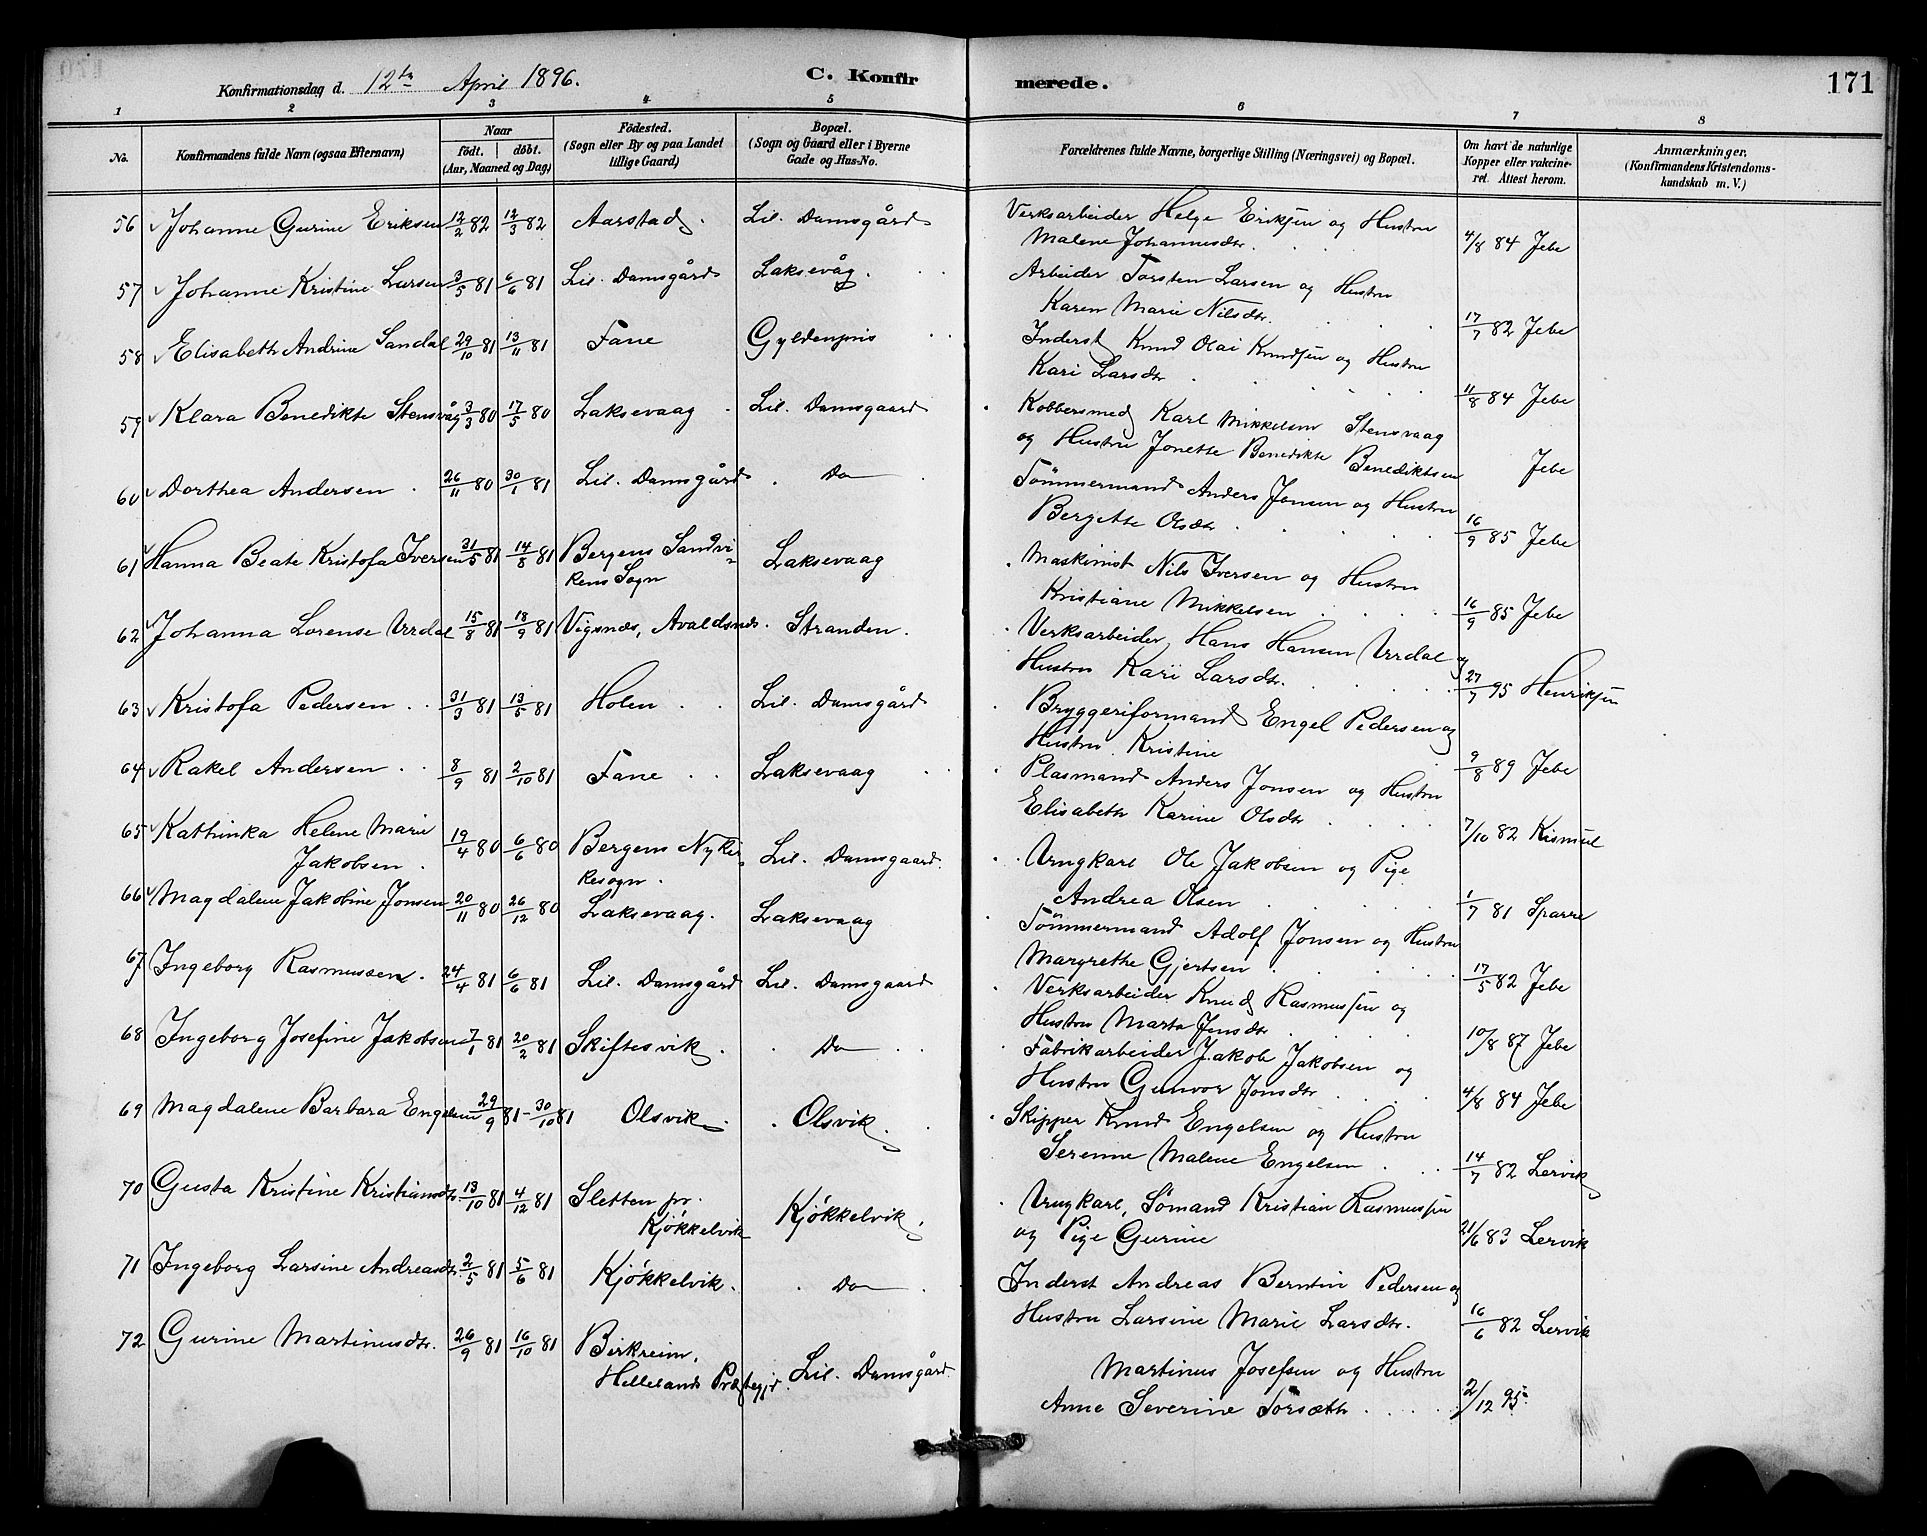 171
Konfirmationsdag d. 12te April 1896.
C. Konfirmerede.
1 2 3 4 5 6 7 8
No. | Konfirmandens fulde Navn (ogsaa Efternavn) | Naar födt. | döbt. (Aar, Maaned og Dag) | Födested. (Sogn eller By og paa Landet tillige Gaard) | Bopæl. (Sogn og Gaard eller i Byerne Gade og Hus-No. | Forældrenes fulde Navne, borgerlige Stilling (Næringsvei) og Bopæl. | Om havt de naturlige Kopper eller vakcineret. Attest herom. | Anmærkninger. (Konfirmandens Kristendomskundskab m. V.)
56 Johanne Gurine Eriksen 12/2 82 12/3 82 Aarstad. Lil. Damsgård Verksarbeider Helge Eriksen og Hustru
Malene Johannesdtr. 4/8 84 Jebe
57 Johanne Kristine Larsen 3/5 81 6/6 81 Lil. Damsgård Laksevåg. Arbeider Torsten Larsen og Hustru
Karen Marie Nilsdtr. 17/7 82 Jebe
58 Elisabeth Andrine Sandal 29/10 81 13/11 81 Fane Gyldenpris Inderst Knud Olai Knudsen og Hustru
Kari Larsdtr 11/8 84 Jebe
59 Klara Benedikte Stensvåg 3/3 80 17/5 80 Laksevaag Lil. Damsgaard Kobbersmed Karl Mikkelsen Stensvaag
og Hustru Jonette Benedikte Benediktsen Jebe
60 Dorthea Andersen 26/11 80 30/1 81 Lil. Damsgård Do Tömmermand Anders Jonsen og Hustru
Bergitte Olsdtr 16/9 85 Jebe
61 Hanna Beate Kristofa Iversen 31/5 81 14/8 81 Bergens Sandvi-
kens Sogn Laksevaag Maskinist Nils Iversen og Hustru
Kristiane Mikkelsen 16/9 85 Jebe
62 Johanna Lorense Urdal 15/8 81 18/9 81 Vigsnæs, Avaldsnæs. Stranden. Verksarbeider Hans Hansen Urdal og
Hustru Kari Larsdtr. 27/7 95 Henriksen
63 Kristofa Pedersen 31/3 81 13/5 81 Holen Lil. Damsgård Bryggeriformand Engel Pedersen og
Hustru Kristine 9/8 89 Jebe
64 Rakel Andersen 8/9 81 2/10 81 Fane Laksevaag Plasmand Anders Jonsen og Hustru
Elisabeth Karine Olsdtr 7/10 82 Kismul
65 Kathinka Helene Marie
Jakobsen 19/4 80 6/6 80 Bergens Nykir-
kesogn. Lil. Damsgaard. Ungkarl Ole Jakobsen og Pige
Andrea Olsen 1/7 81 Sparre
66 Magdalene Jakobine Jonsen 20/11 80 26/12 80 Laksevaag. Laksevaag Tömmermand Adolf Jonsen og Hustru
Margrethe Gjertsen 17/5 82 Jebe
67 Ingeborg Rasmussen. 24/4 81 6/6 81 Lil. Damsgård Lil. Damsgaard Verksarbeider Knud Rasmussen og
Hustru Marta Jensdtr 10/8 87 Jebe
68 Ingeborg Josefine Jakobsen 7/1 81 20/2 81 Skiftesvik Do Fabrikarbeider Jakob Jakobsen og
Hustru Gunvor Jonsdtr 4/8 84 Jebe
69 Magdalene Barbara Engelsen 29/9 81 - 30/10 81 Olsvik Olsvik. Skipper Knud Engelsen og Hustru
Serenne Malene Engelsen 14/7 82 Lervik
70 Gusta Kristine Kristiansdtr. 13/10 81 4/12 81 Sletten pr.
Kjøkkelvik Kjøkkelvik. Ungkarl, Sömand Kristian Rasmussen
og Pige Gurine 21/6 83 Lervik
71 Ingeborg Larsine Andreasdtr. 2/5 81 5/6 81 Kjøkkelvik. Do Inderst Andreas Berntin Pedersen og
Hustru Larsine Marie Larsdtr. 16/6 82 Lervik
72 Gurine Martinusdtr. 26/9 81 16/10 81 Birkreim,
Hellelands Præstegjd. Lil. Damsgård Martinus Josefsen og Hustru
Anne Severine Torsdtr 2/12 95